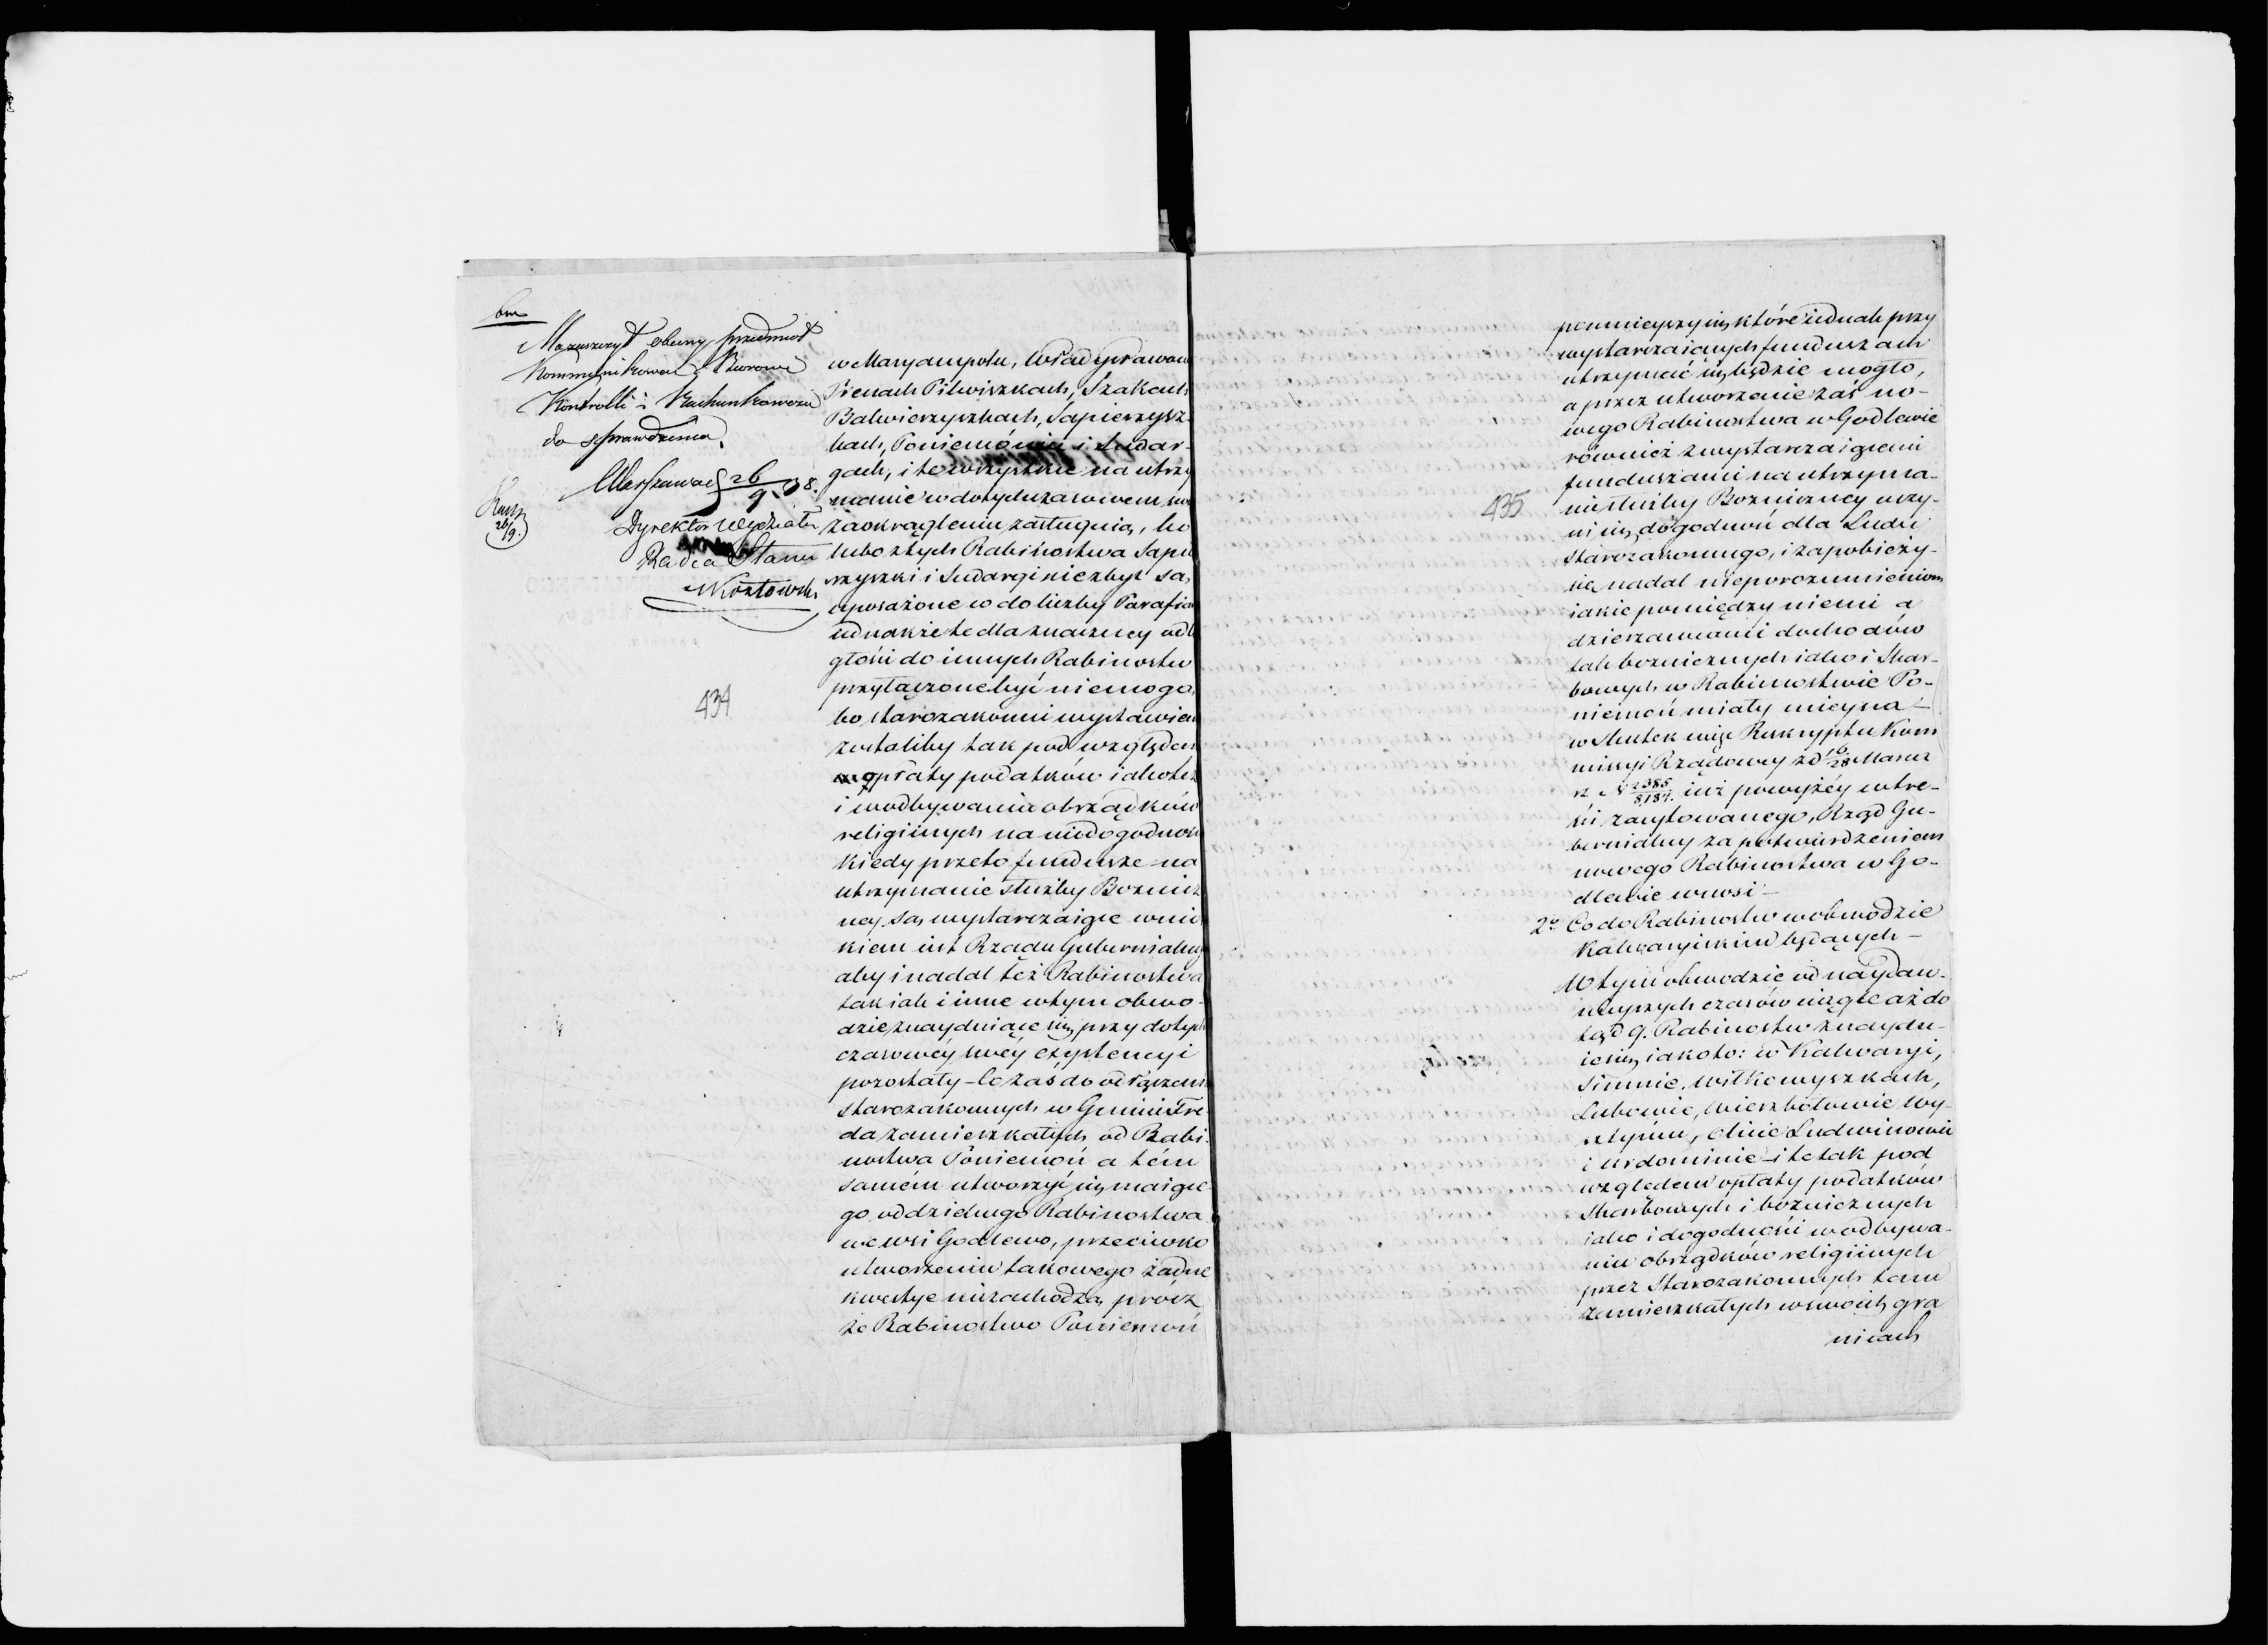 bm
Mazaszczyt obecny przedmiot
Kommunikować Biorowi
Kontrolli i Rachunkowemu
do sprawdzenia.
Warszawa d 26/9 38.
Dyrektor Wydziału
Radca Stanu
Kozłowski
26/9.
434
w Maryampolu, Władysławow
Pienach Pilwiszkach, Szakach
Balwierzyszkach, Sapierzysz-
kach, Poniemóniu i Sudar-
gach, i te wszystkie na utrzy
manie w dotychczasowem swe
zaokrągleniu zasługuią, bo
lubo z tych Rabinostwa Sapie
rzyszki i Sudargi niezbyt są
uposażone w do liczby Parafian
iednakże te dla znaczney odle
głości do innych Rabinostw
przyłączone być niemogą
bo starozakonni wystawieni
zostaliby tak pod względem
opłaty podatków iakoteż
i w odbywania obrządków
religiinych na niedogodnośc
kiedy przeto fundusze na
utrzymanie służby Boznicz
ney są wystarczaiące wnio
kiem iest Rządu Gubernialneg
aby i nadal też Rabinostwa
tak iak i inne w tym obwo-
dzie znayduiące się przy dotych
czasowéy swéy exystencyi
pozostały – Co zaś do odłączeni
starozakonnych w Gminie Fre-
da zamieszkałych od Rabi-
nostwa Poniemoń a tém
samém utworzyć się maiące-
go oddzielnego Rabinostwa
we wsi Godlewo, przeciwko
utworzeniu takowego żadne
kwestye niezachodzą prócz
że Rabinostwo Poniemoń
435
pomnieyszy się które iednak przy
wystarczaiących funduszach
utrzymać się będzie mogło,
a przez utworzenie zaś no-
wego Rabinostwa w Godlewie
również z wystarczaiącemi
funduszami na utrzyma-
nie służby Bozniczney uczy-
ni się dogodność dla Ludu
starozakonnego, i zapobieży-
się nadal nieporozumieniom
iakie pomiędzy niemi a
dzierzawcami dochodów
tak bozniczych iako i Skar-
bowych w Rabinostwie Po-
niemoń miały mieysca –
w skutek więc Reskryptu Kom
missyi Rządowey z d 16/28 Marca
r. b. N 2385/8187. iuż powyżéy w tre-
ści zacytowanego, Rząd Gu-
bernialny za potwierdzeniem
nowego Rabinostwa w Go-
dlewie wnosi –
2o Co do Rabinostw w obwodzie
Kalwaryiskim będących –
W tym obwodzie od naydaw-
nieyszych czasów ciągle aż do
tąd 9. Rabinostw znaydu-
ie się iakoto: w Kalwaryi,
Simnie, Wiłkowyszkach,
Lubowie, Wierzbołowie Wy-
sztyńcu, Olicie Ludwinowie
i Urdominie – i te tak pod
względem opłaty podatków
Skarbowych i bozniczych
iako i dogodności w odbywa-
niu obrządków religiinych
przez Starozakonnych tam
zamieszkałych w swoich gra
nicach